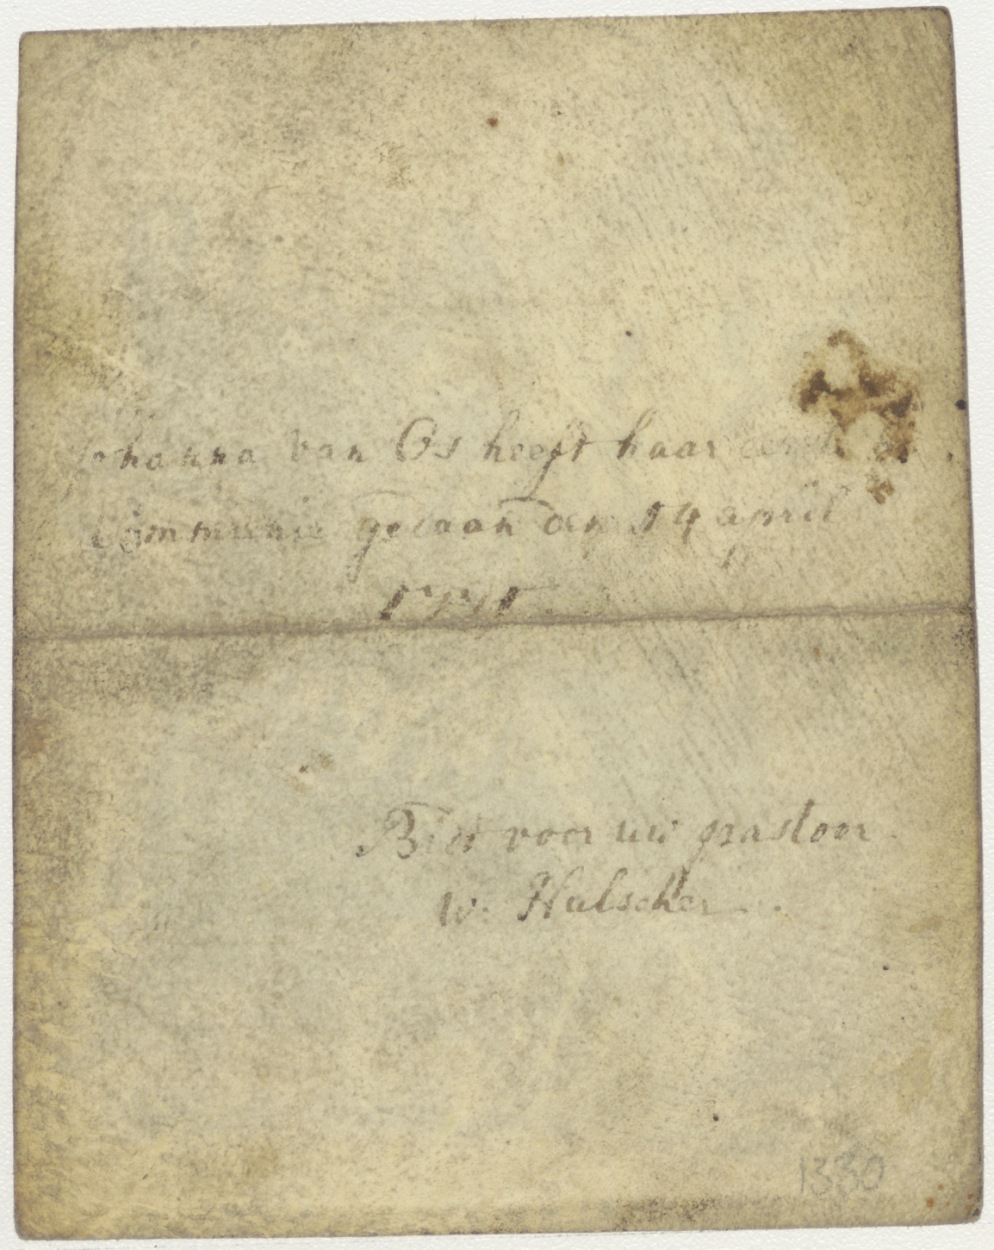 Johanna van Os heeft haar eerste
Communie gedaan den 14 april
Bidt voor uw pastoor
W: Hulscher
1330